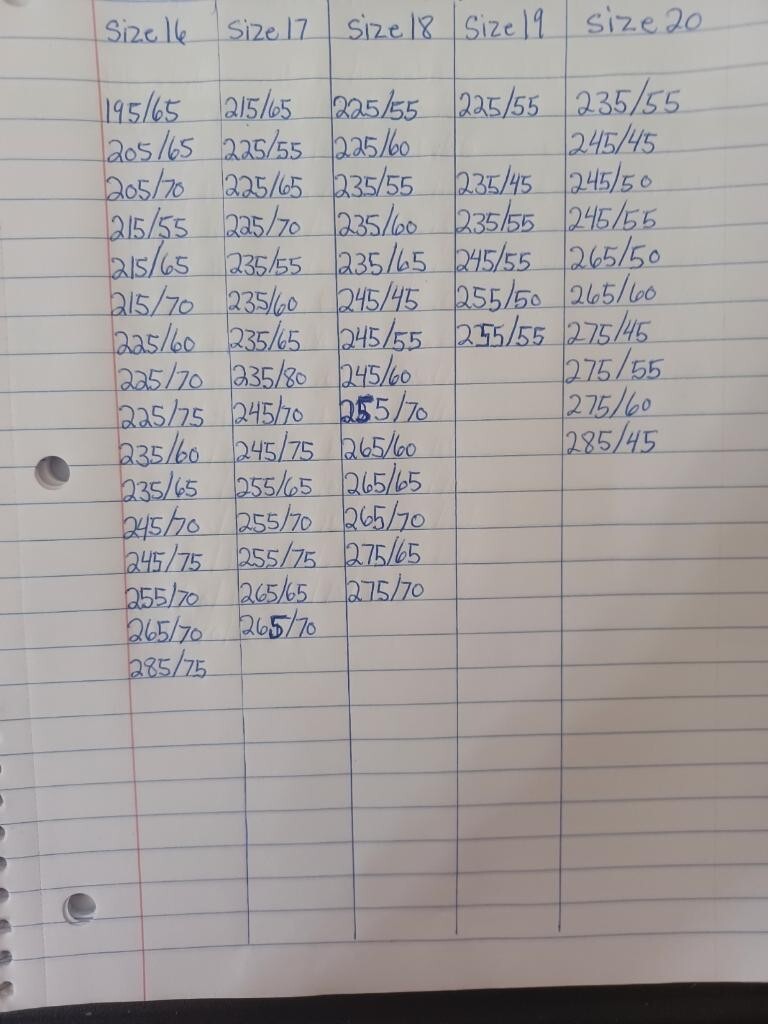 Size 16 Size 17 Size 18 Size 19 Size 20
195/65 215/65 225/55 225/55 235/55
205/65 225/55 225/60 245/45
205/70 225/65 235/55 235/45 245/50
215/55 225/70 235/60 235/55 245/55
215/65 235/55 235/65 245/55 265/50
215/70 235/60 245/45 255/50 265/60
225/60 235/65 245/55 255/55 275/45
225/70 235/80 245/60 275/55
225/75 245/70 255/70 275/60
235/60 245/75 265/60 285/45
235/65 255/65 265/65
245/70 255/70 265/70
245/75 255/75 275/65
255/70 265/65 275/70
265/70 265/70
285/75